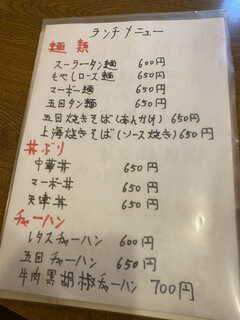 ランチメニュー
麺類
スーラータン麺 600円
もやしロース麺 650円
マーボー麺 650円
五目タン麺 650円
五目焼きそば(あんかけ) 650円
上海焼きそば(ソース焼き) 650円
丼ぶり
中華丼 650円
マーボ丼 650円
天津丼 650円
チャーハン
レタスチャーハン 600円
五目チャーハン 650円
牛肉黒胡椒チャーハン 700円